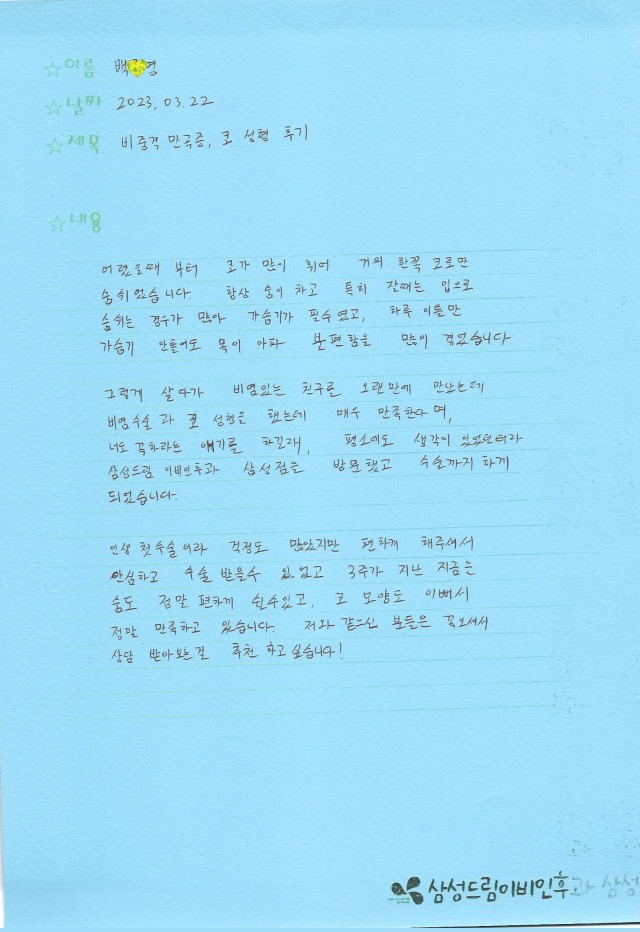 ☆이름 백 영
☆날짜 2023. 03. 22
☆제목 비중격 만곡증, 코 성형 후기
☆내용
어렸을때 부터 코가 많이 휘어 거의 한쪽 코로만
숨쉬었습니다. 항상 숨이 차고 특히 잘때는 입으로
숨쉬는 경우가 많아 가습기가 필수였고, 하루 이틀만
가습기 안틀어도 목이 아파 불편함을 많이 겪었습니다
그렇게 살다가 비염있는 친구를 오랜만에 만났는데
비염수술과 코 성형을 했는데 매우 만족한다며,
너도 꼭하라는 얘기를 하길래, 평소에도 생각이 있었던터라
삼성드림 이비인후과 삼성점을 방문했고 수술까지 하게
되었습니다.
인생 첫수술이라 걱정도 많았지만 편하게 해주셔서
안심하고 수술 받을수 있었고 3주가 지난 지금은
숨도 정말 편하게 쉴수있고, 코 모양도 이뻐서
정말 만족하고 있습니다. 저와 같으신 분들은 꼭오셔서
상담 받아보는걸 추천 하고싶습니다!
삼성드림이비인후과 삼성